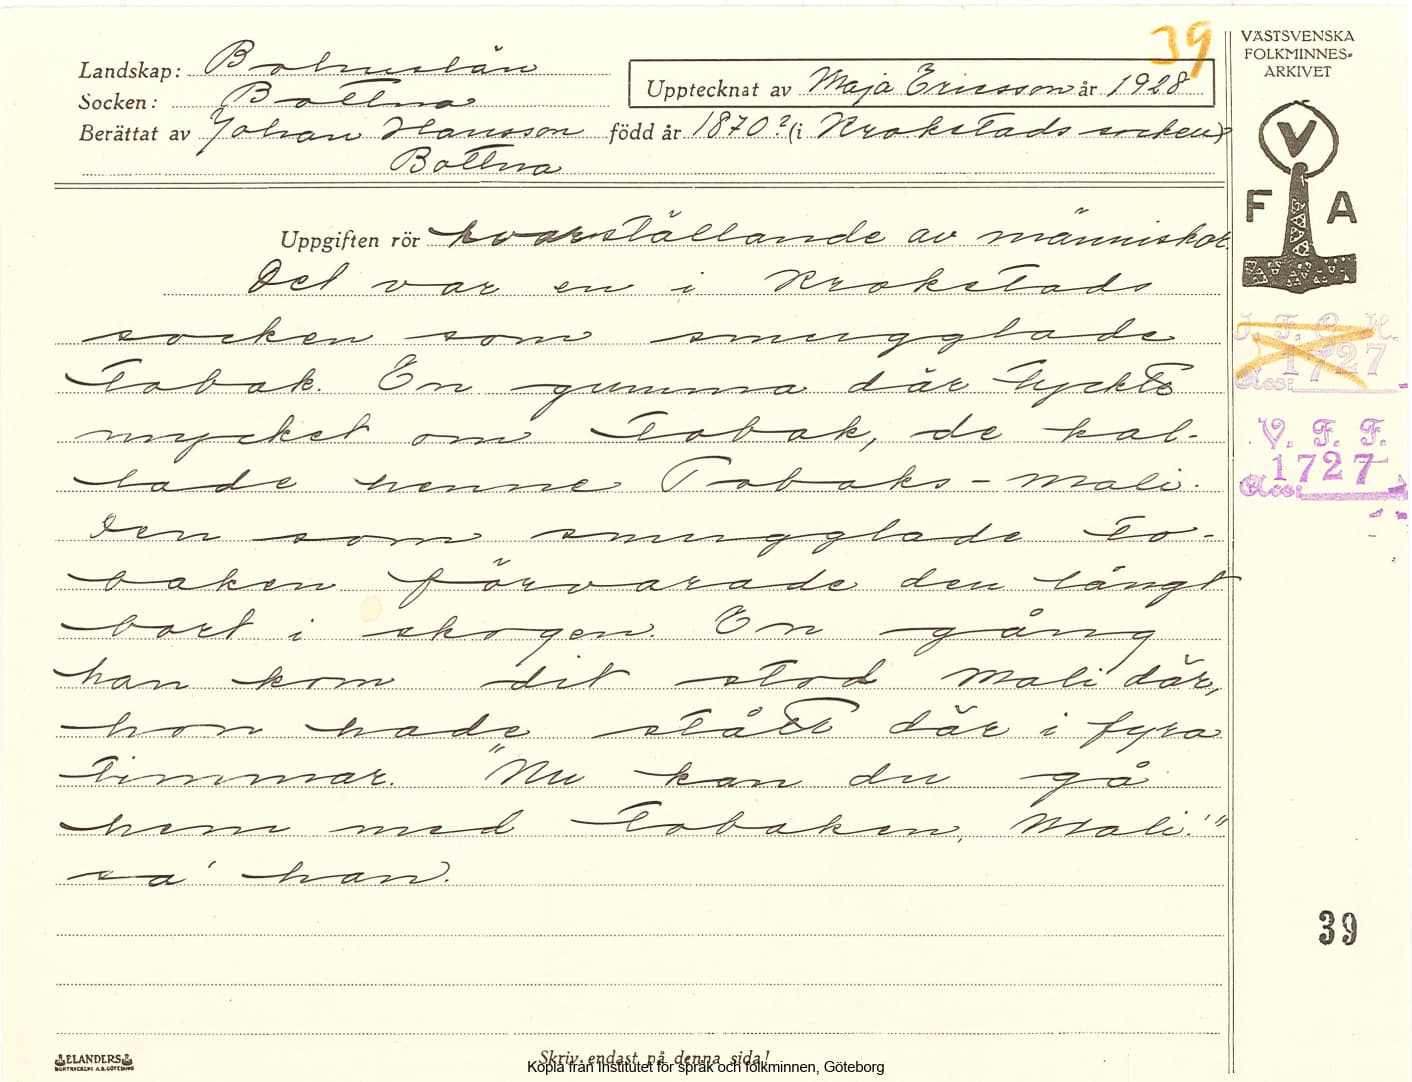 39
VÄSTSVENSKA
FOLKMINNES-
ARKIVET
Landskap: Bohuslän
Socken: Bottna
Upptecknat av Maja Ericsson år 1928
Berättat av Johan Hansson född år 1870? (i Krokstads socken)
Bottna
V
F A
Uppgiften rör kvarställande av människor.
Det var en i Krokstads
socken som smugglade
tobak. En gumma där tyckte
mycket om tobak, de kal-
lade henne Tobaks-Mali.
Den som smugglade to-
baken förvarade den långt
bort i skogen. En gång
han kom dit stod Mali där,
hon hade stått där i fyra
timmar. "Nu kan du gå
hem med tobaken, Mali!"
sa' han.
I. F. G. H.
1727
Acc:
V. F. F.
1727
Acc:
39
ELANDERS
BOKTRYCKERI A.B. GÖTEBORG
Skriv endast på denna sida!
Kopia från Institutet för språk och folkminnen, Göteborg